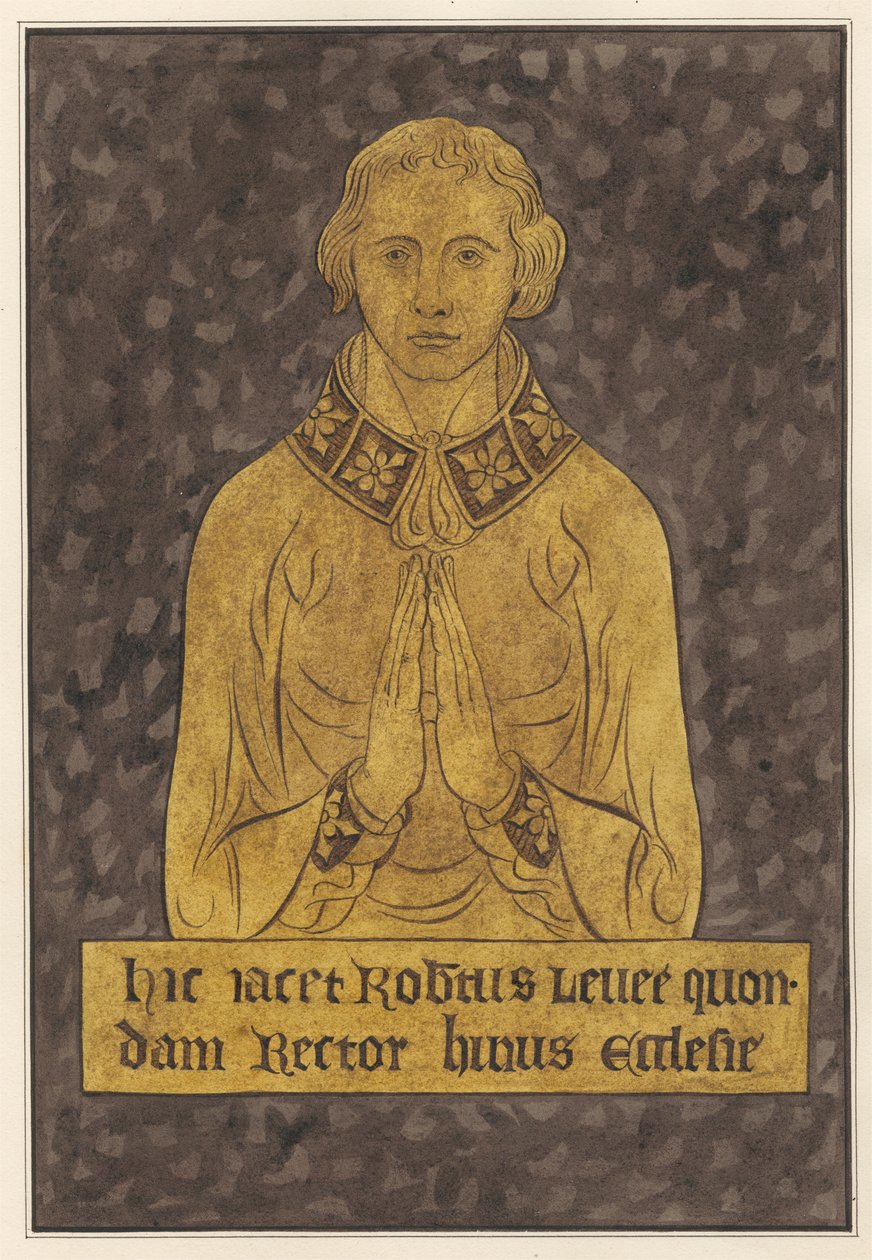 hic iacet Robtus Leuee quon·
dam Rector huius Ecclesie